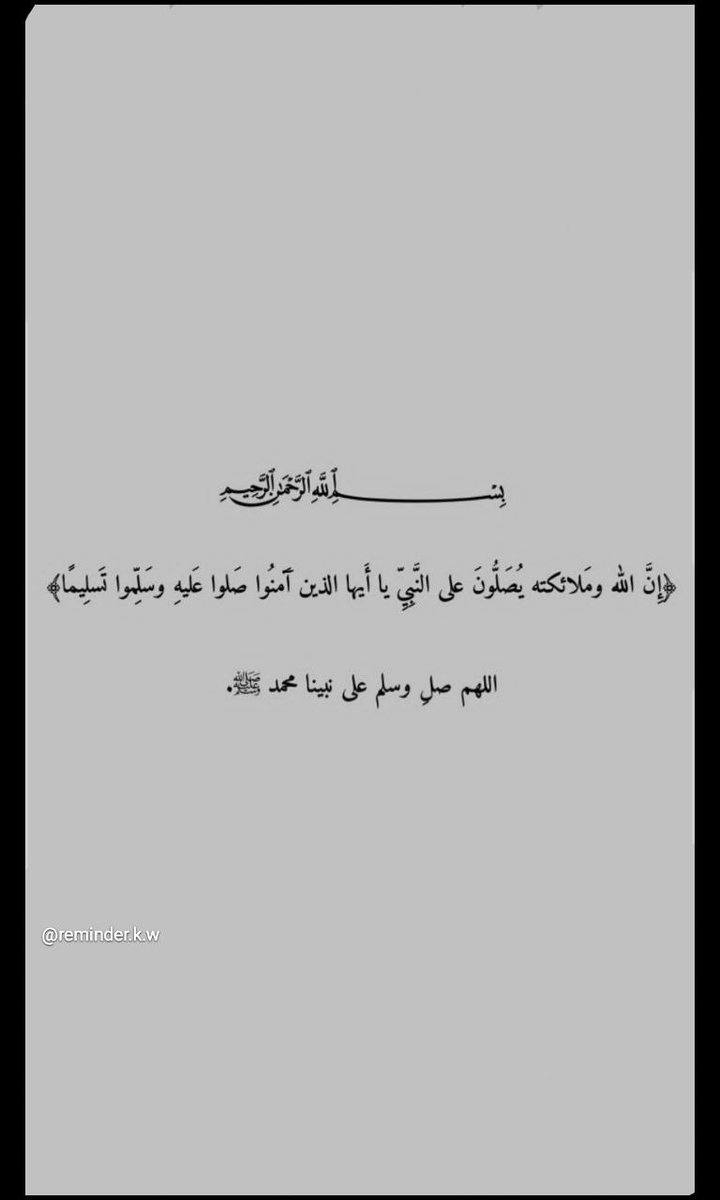 بِسْمِ اللَّهِ الرَّحْمَٰنِ الرَّحِيمِ
﴿إِنَّ الله ومَلائكته يُصَلُّونَ على النَّبِيِّ يا أَيها الذين آمنُوا صَلوا عَليهِ وسَلِّموا تَسلِيمًا﴾
اللهم صلِ وسلم على نبينا محمد ﷺ.
@reminder.k.w